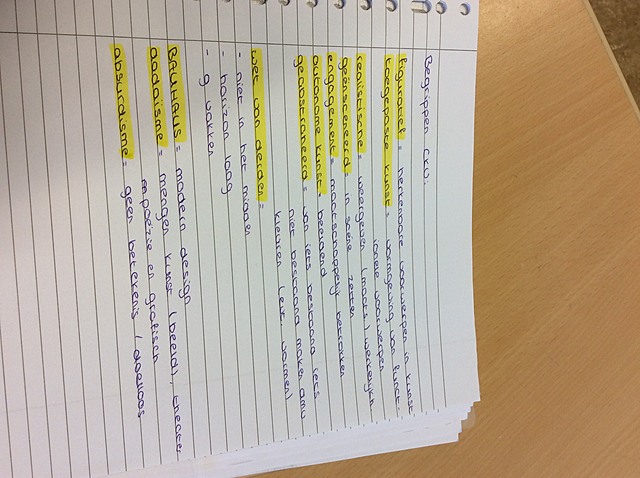 Begrippen CKV.
figuratief = herkenbare voorwerpen in kunst
toegepaste kunst = vormgeving van funct-
ionele voorwerpen
realistische = weergeven (maats.) werkelijkh.
geënsceneerd = in scène zetten
engagement = maatschappelijk betrokken
autonome kunst = beeldend
geabstraheerd = van iets bestaand iets
niet bestaand maken dmv
kleuren (evt. vormen)
wet van derden =
- niet in het midden
- horizon laag
- 9 vakken
BAUHAUS = modern design
dadaïsme = mengen kunst (beeld), theater
poëzie en grafisch
absurdisme = geen betekenis / doelloos